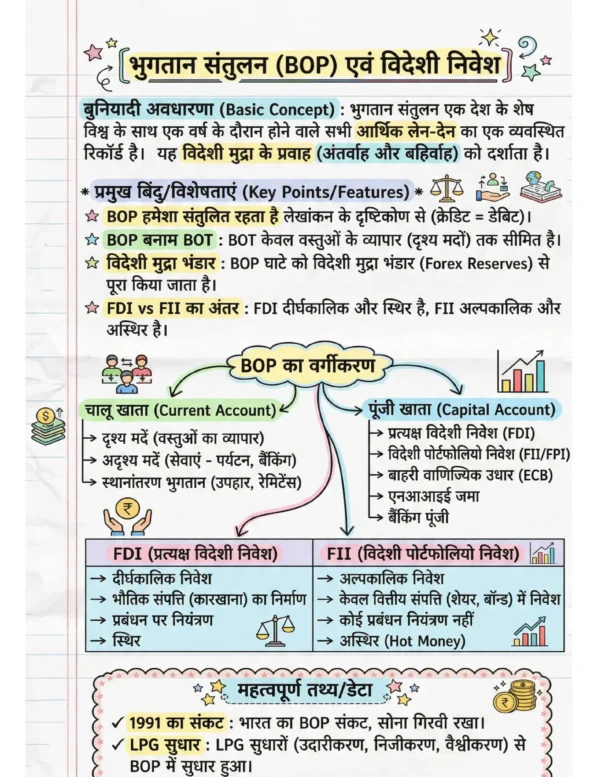 भुगतान संतुलन (BOP) एवं विदेशी निवेश
बुनियादी अवधारणा (Basic Concept) : भुगतान संतुलन एक देश के शेष
विश्व के साथ एक वर्ष के दौरान होने वाले सभी आर्थिक लेन-देन का एक व्यवस्थित
रिकॉर्ड है। यह विदेशी मुद्रा के प्रवाह (अंतर्वाह और बहिर्वाह) को दर्शाता है।
* प्रमुख बिंदु/विशेषताएं (Key Points/Features) *
BOP हमेशा संतुलित रहता है लेखांकन के दृष्टिकोण से (क्रेडिट = डेबिट)।
BOP बनाम BOT : BOT केवल वस्तुओं के व्यापार (दृश्य मदों) तक सीमित है।
विदेशी मुद्रा भंडार : BOP घाटे को विदेशी मुद्रा भंडार (Forex Reserves) से
पूरा किया जाता है।
FDI vs FII का अंतर : FDI दीर्घकालिक और स्थिर है, FII अल्पकालिक और
अस्थिर है।
BOP का वर्गीकरण
चालू खाता (Current Account)
→ दृश्य मदें (वस्तुओं का व्यापार)
→ अदृश्य मदें (सेवाएं - पर्यटन, बैंकिंग)
→ स्थानांतरण भुगतान (उपहार, रेमिटेंस)
पूंजी खाता (Capital Account)
→ प्रत्यक्ष विदेशी निवेश (FDI)
→ विदेशी पोर्टफोलियो निवेश (FII/FPI)
→ बाहरी वाणिज्यिक उधार (ECB)
→ एनआरआई जमा
→ बैंकिंग पूंजी
FDI (प्रत्यक्ष विदेशी निवेश)
→ दीर्घकालिक निवेश
→ भौतिक संपत्ति (कारखाना) का निर्माण
→ प्रबंधन पर नियंत्रण
→ स्थिर
FII (विदेशी पोर्टफोलियो निवेश)
→ अल्पकालिक निवेश
→ केवल वित्तीय संपत्ति (शेयर, बॉन्ड) में निवेश
→ कोई प्रबंधन नियंत्रण नहीं
→ अस्थिर (Hot Money)
महत्वपूर्ण तथ्य/डेटा
✓ 1991 का संकट : भारत का BOP संकट, सोना गिरवी रखा।
✓ LPG सुधार : LPG सुधारों (उदारीकरण, निजीकरण, वैश्वीकरण) से
BOP में सुधार हुआ।